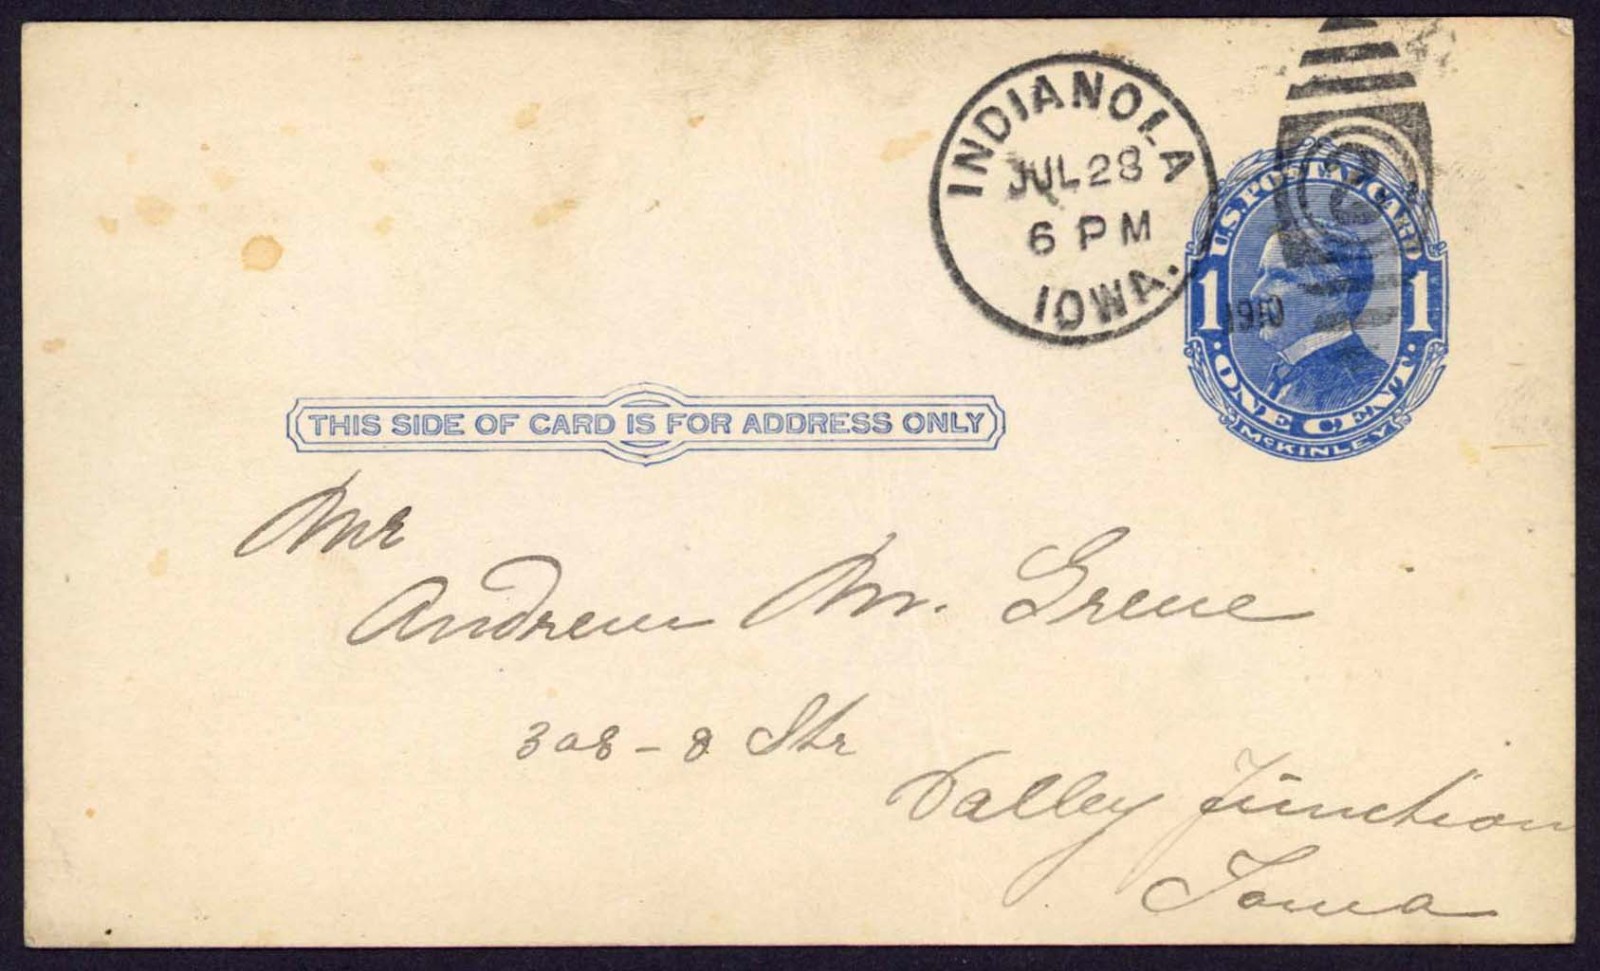 INDIANOLA
JUL 28
6 PM
IOWA.
1910
U.S. POSTAL CARD
1 1
· ONE CENT ·
McKINLEY
THIS SIDE OF CARD IS FOR ADDRESS ONLY
Mr
Andrew M. Grene
308 - 8 Str
Valley Junction
Iowa